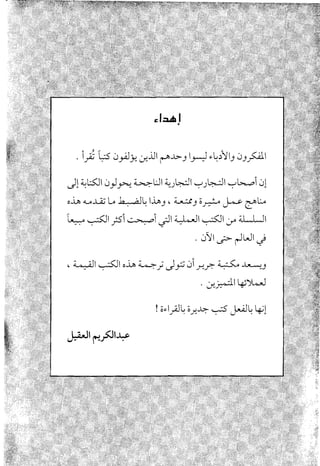 إهداء
المفكرون والأدباء ليسوا وحدهم الذين يؤلفون كتباً تُقرأ .
إن أصحاب التجارب التجارية الناجحة يحولون الكتابة إلى
مناهج عمل مثيرة وممتعة ، وهذا بالضبط ما تقدمه هذه
السلسلة من الكتب العملية التي أصبحت أكثر الكتب مبيعاً
في العالم حتى الآن .
ويسعد مكتبة جرير أن تتولى ترجمة هذه الكتب القيمة ،
لعملائها المتميزين .
إنها بالفعل كتب جديرة بالقراءة !
عبدالكريم العقيل